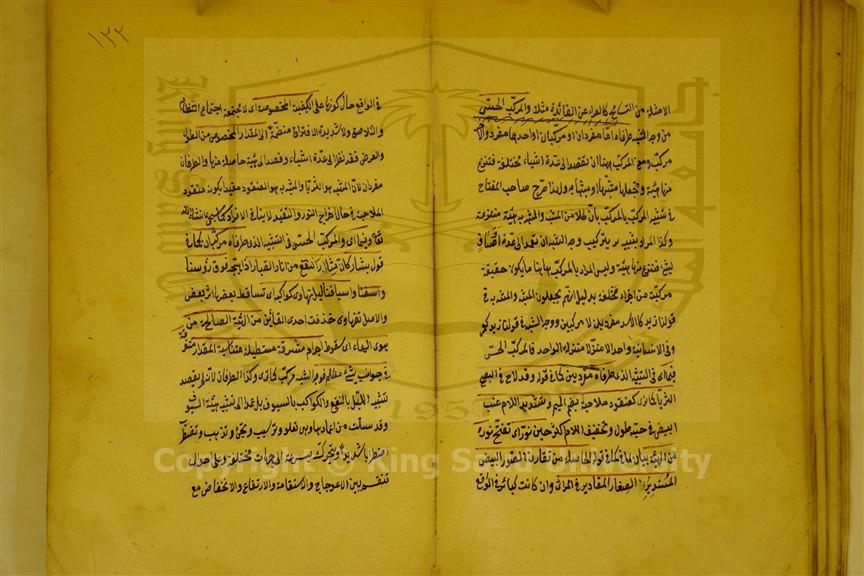 ١٢٢
الامثلة من التسامح كالعراء عن الفائدة مثلا والمركب الحسي
من وجه الشبه طرفاه اما مفردان او مركبان او احدهما مفرد والآخر
مركب ومعنى المركب ههنا ان يقصد الى عدة اشياء مختلفة فتنتزع
منها هيئة وتجعلها مشبها او مشبها به ولهذا صرح صاحب المفتاح
في تشبيه المركب بالمركب بان كلا من المشبه والمشبه به هيئة منتزعة
وكذا المراد بتركيب وجه الشبه ان تعمد الى عدة اوصاف
لشيء فتنتزع منها هيئة وليس المراد بالمركب ههنا ما يكون حقيقة
مركبة من اجزاء مختلفة بدليل انهم يجعلون المشبه والمشبه به في
قولنا زيد كالاسد مفردين لا مركبين ووجه الشبه في قولنا زيد كعمرو
في الانسانية واحدا لا منزلا منزلة الواحد فالمركب الحسي
فيما اي في التشبيه الذي طرفاه مفردين كما في قوله وقد لاح في الصبح
الثريا كما ترى كعنقود ملاحية بضم الميم وتشديد اللام عنب
ابيض في حبه طول وتخفيف اللام اكثر حين نورا اي تفتح نوره
من الهيئة بيان لما في كما في قوله الحاصلة من تقارن الصور البيض
المستديرة الصغار المقادير في المرأى وان كانت كبارا في الواقع
في الواقع حال كونها على الكيفية المخصوصة اي لا مجتمعة اجتماع التضام
والتلاصق ولا شديدة الافتراق منضمة الى المقدار المخصوص من الطول
والعرض فقد نظر الى عدة اشياء وقصد الى هيئة حاصلة منها والطرفان
مفردان لان المشبه هو الثريا والمشبه به هو العنقود مقيدا بكونه عنقود
الملاحية في حال اخراج النور والتقييد لا ينافي الافراد كما سيجيء انشاء الله
تعالى وفيما اي والمركب الحسي في التشبيه الذي طرفاه مركبان كما في
قول بشار كان مثار النقع من اثار الغبار اذا هيجه فوق رؤسنا
واسيافنا ليل تهاوى كواكبه اي تساقط بعضها اثر بعض
والاصل تتهاوى حذفت احدى التائين من الهيئة الحاصلة من
هوي الهاء اي سقوط اجرام مشرقة مستطيلة متناسبة المقدار متفرقة
في جوانب شيء مظلم فوجه الشبه مركب كما ترى وكذا الطرفان لانه لم يقصد
تشبيه الليل بالنقع والكواكب بالسيوف بل عمد الى تشبيه هيئة السيوف
وقد سلت من اغمادها وهي تعلو وترسب وتجيء وتذهب وتضطرب
اضطرابا شديدا وتتحرك بسرعة الى جهات مختلفة وعلى احوال
تنقسم بين الاعوجاج والاستقامة والارتفاع والانخفاض مع
Copyright © King Saud University
1957